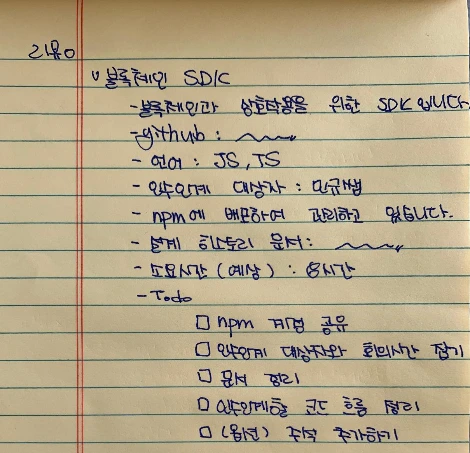 리뮤0
v 블록체인 SDK
- 블록체인과 상호작용을 위한 SDK 입니다
- github :
- 언어 : JS, TS
- 인수인계 대상자 : 민규쌤
- npm에 배포하여 관리하고 있습니다.
- 설계 히스토리 문서 :
- 소요시간 (예상) : 8시간
- Todo
□ npm 계정 공유
□ 인수인계 대상자와 회의시간 잡기
□ 문서 정리
□ 인수인계할 코드 흐름 정리
□ (옵션) 주석 추가하기